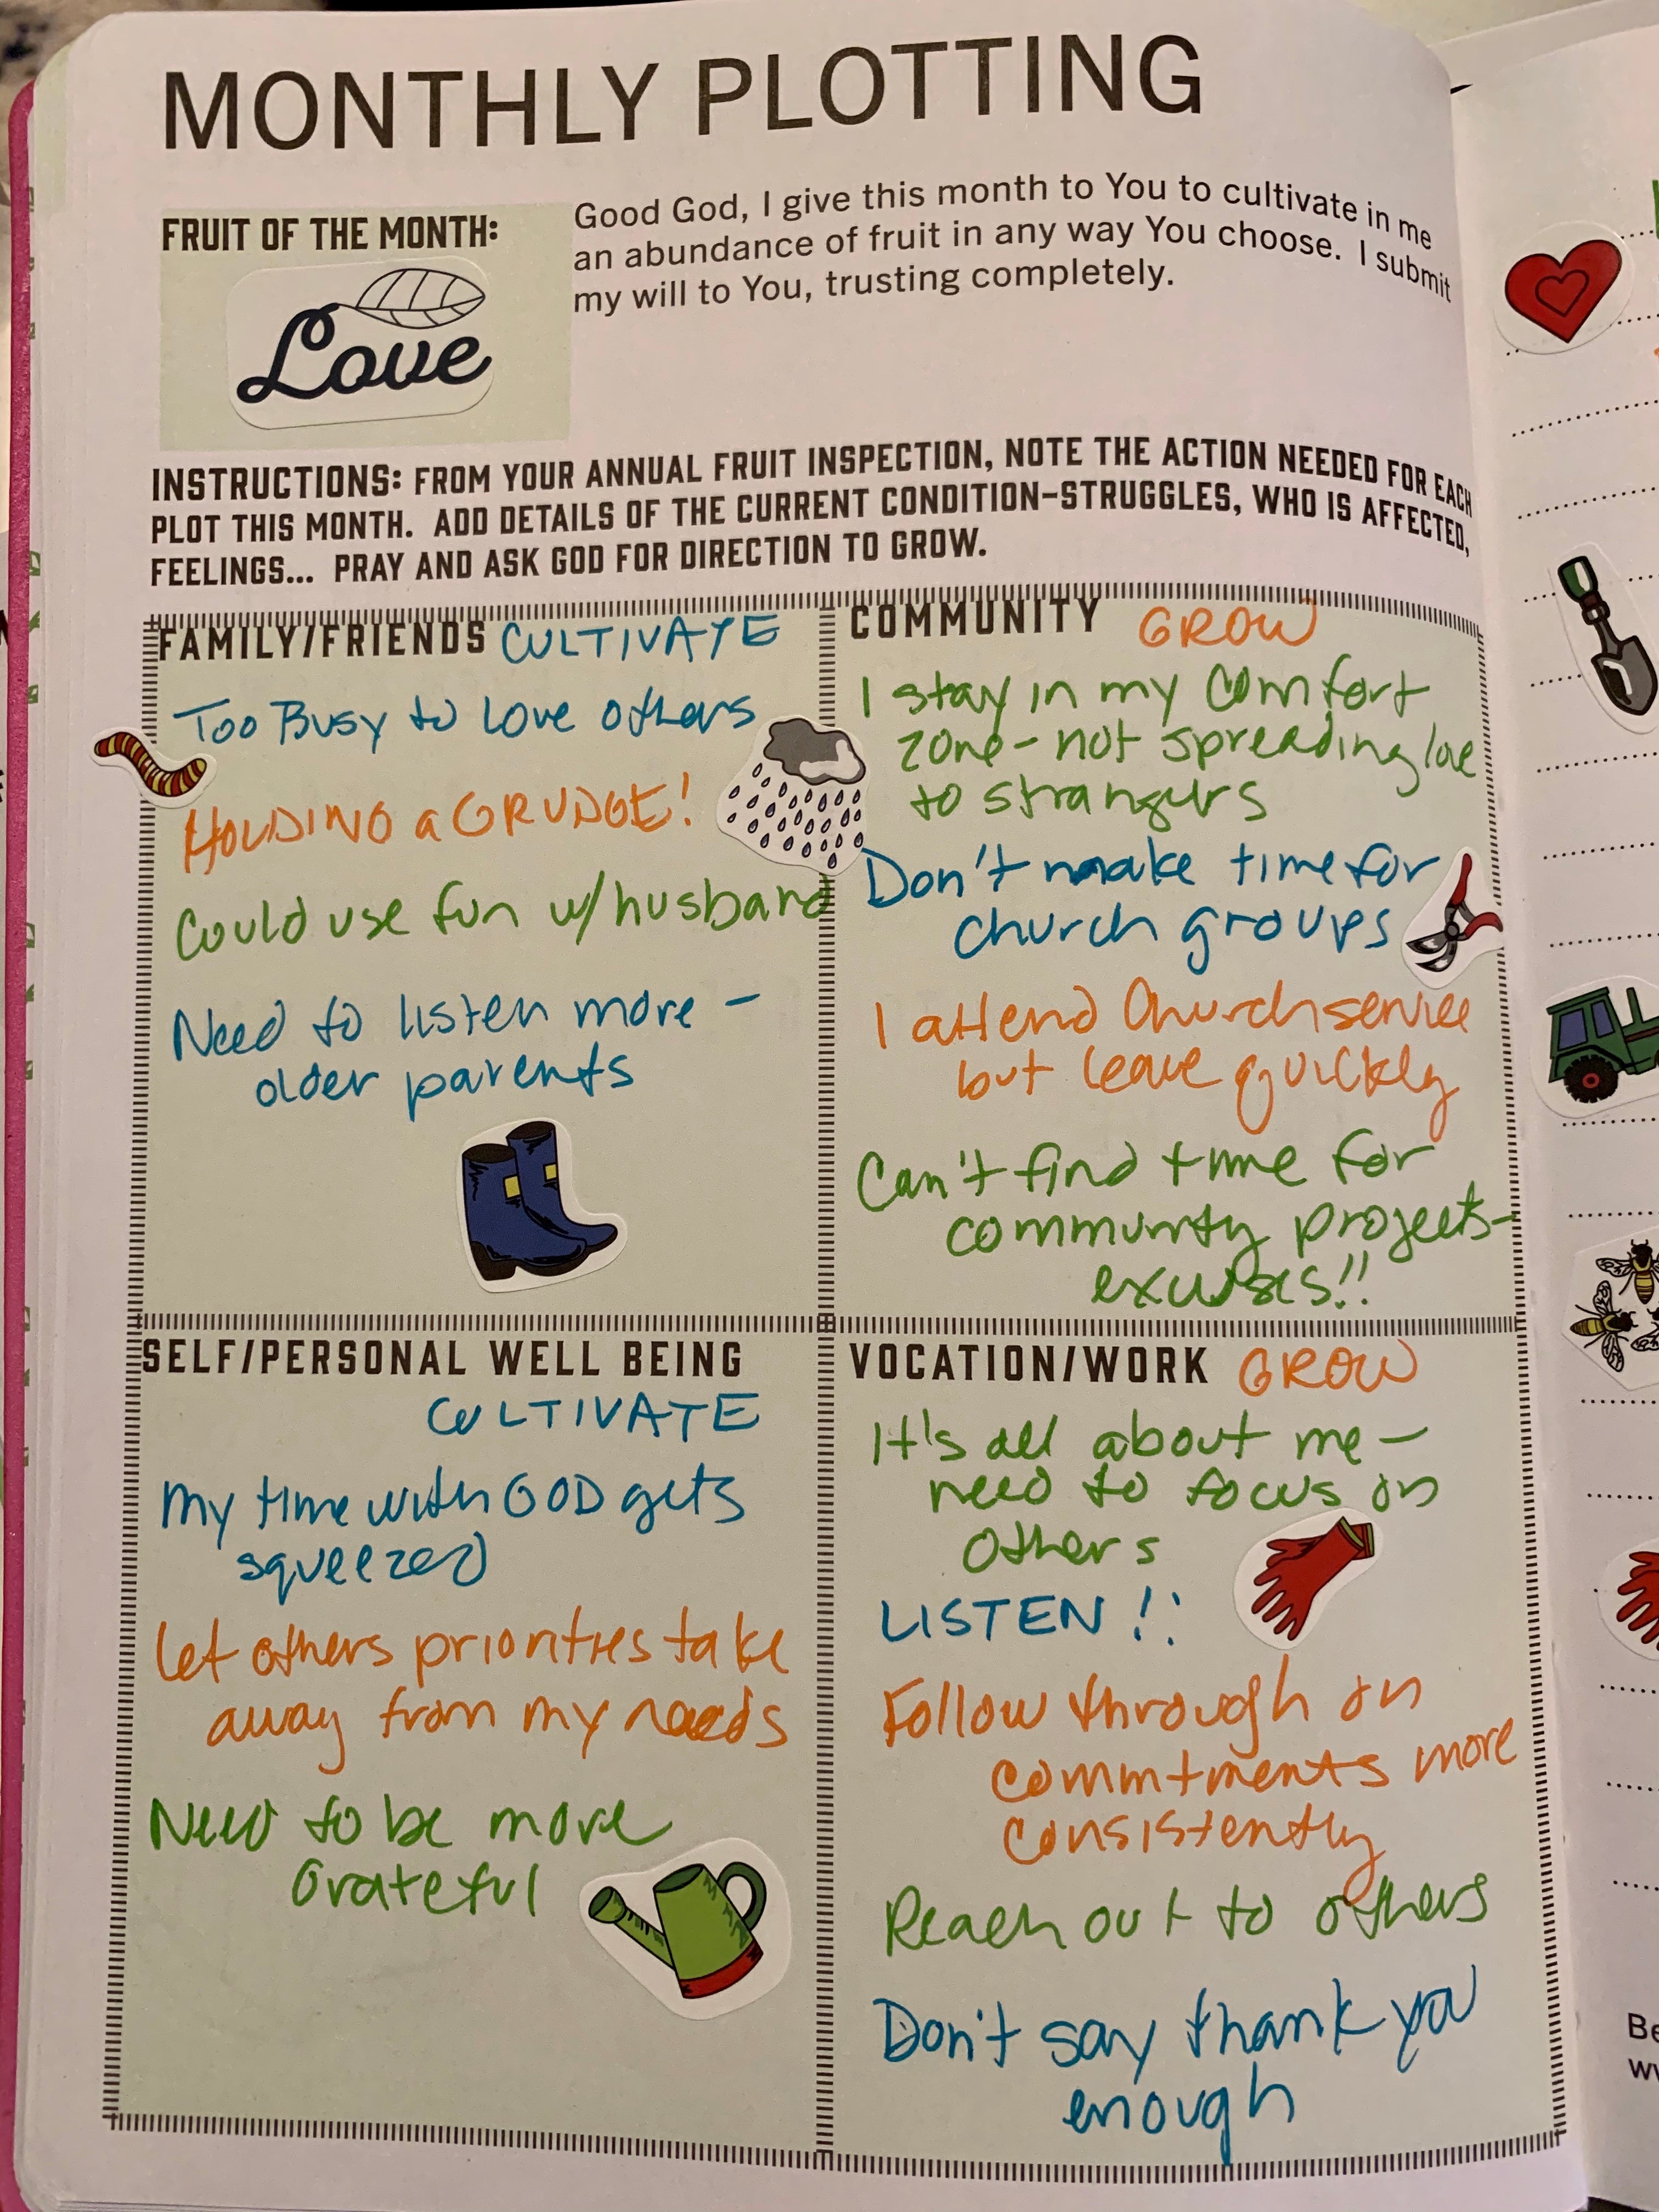 MONTHLY PLOTTING
FRUIT OF THE MONTH:
Love
Good God, I give this month to You to cultivate in me
an abundance of fruit in any way You choose. I submit
my will to You, trusting completely.
INSTRUCTIONS: FROM YOUR ANNUAL FRUIT INSPECTION, NOTE THE ACTION NEEDED FOR EACH
PLOT THIS MONTH. ADD DETAILS OF THE CURRENT CONDITION-STRUGGLES, WHO IS AFFECTED,
FEELINGS... PRAY AND ASK GOD FOR DIRECTION TO GROW.
FAMILY/FRIENDS CULTIVATE
Too Busy to love others
HOLDING a GRUDGE!
Could use fun w/husband
Need to listen more -
older parents
COMMUNITY GROW
I stay in my comfort
zone - not spreading love
to strangers
Don't make time for
church groups
I attend Church service
but leave quickly
Can't find time for
community projects-
excuses!!
SELF/PERSONAL WELL BEING
CULTIVATE
My time with GOD gets
squeezed
Let others priorities take
away from my needs
Need to be more
Grateful
VOCATION/WORK GROW
It's all about me -
need to focus on
others
LISTEN!!
Follow through on
commtments more
consistently
Reach out to others
Don't say thank you
enough
Be